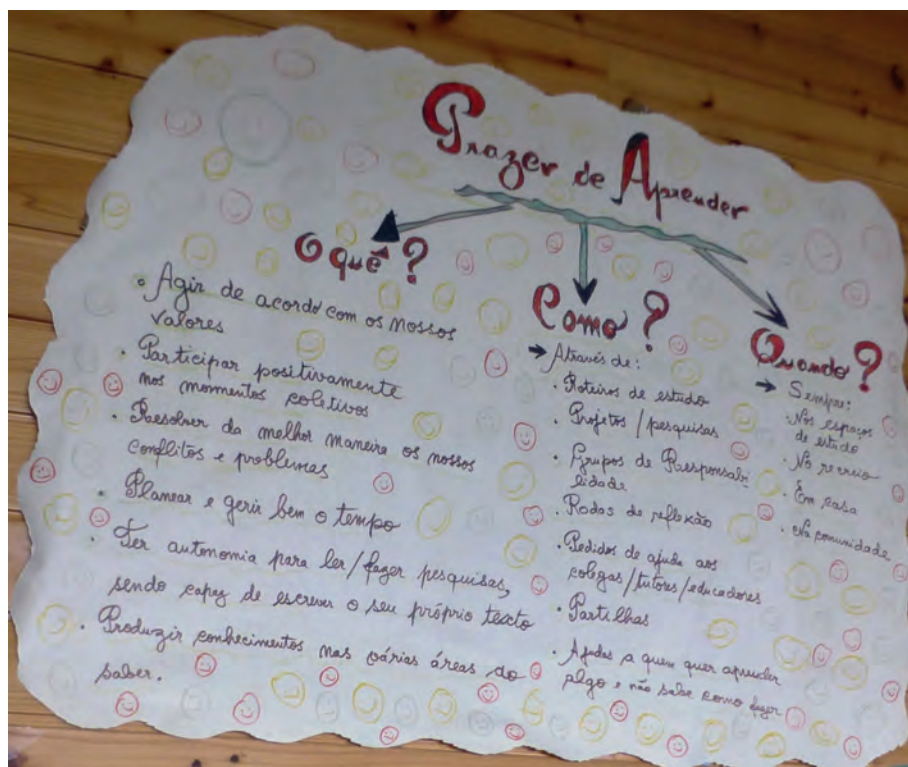 Prazer de Aprender
O quê?
• Agir de acordo com os nossos
valores
• Participar positivamente
nos momentos coletivos
• Resolver da melhor maneira os nossos
conflitos e problemas
• Planear e gerir bem o tempo
• Ter autonomia para ler/fazer pesquisas,
sendo capaz de escrever o seu próprio texto
• Produzir conhecimentos nas várias áreas do
saber.
Como?
→ Através de:
• Roteiros de estudo
• Projetos/pesquisas
• Grupos de Responsabi
lidade
• Rodas de reflexão
• Pedidos de ajuda aos
colegas/tutores/educadores
• Partilhas
• Ajudas a quem quer aprender
algo e não sabe como fazer
Quando?
→ Sempre:
• Nos espaços
de estudo
• No recreio
• Em casa
• Na comunidade